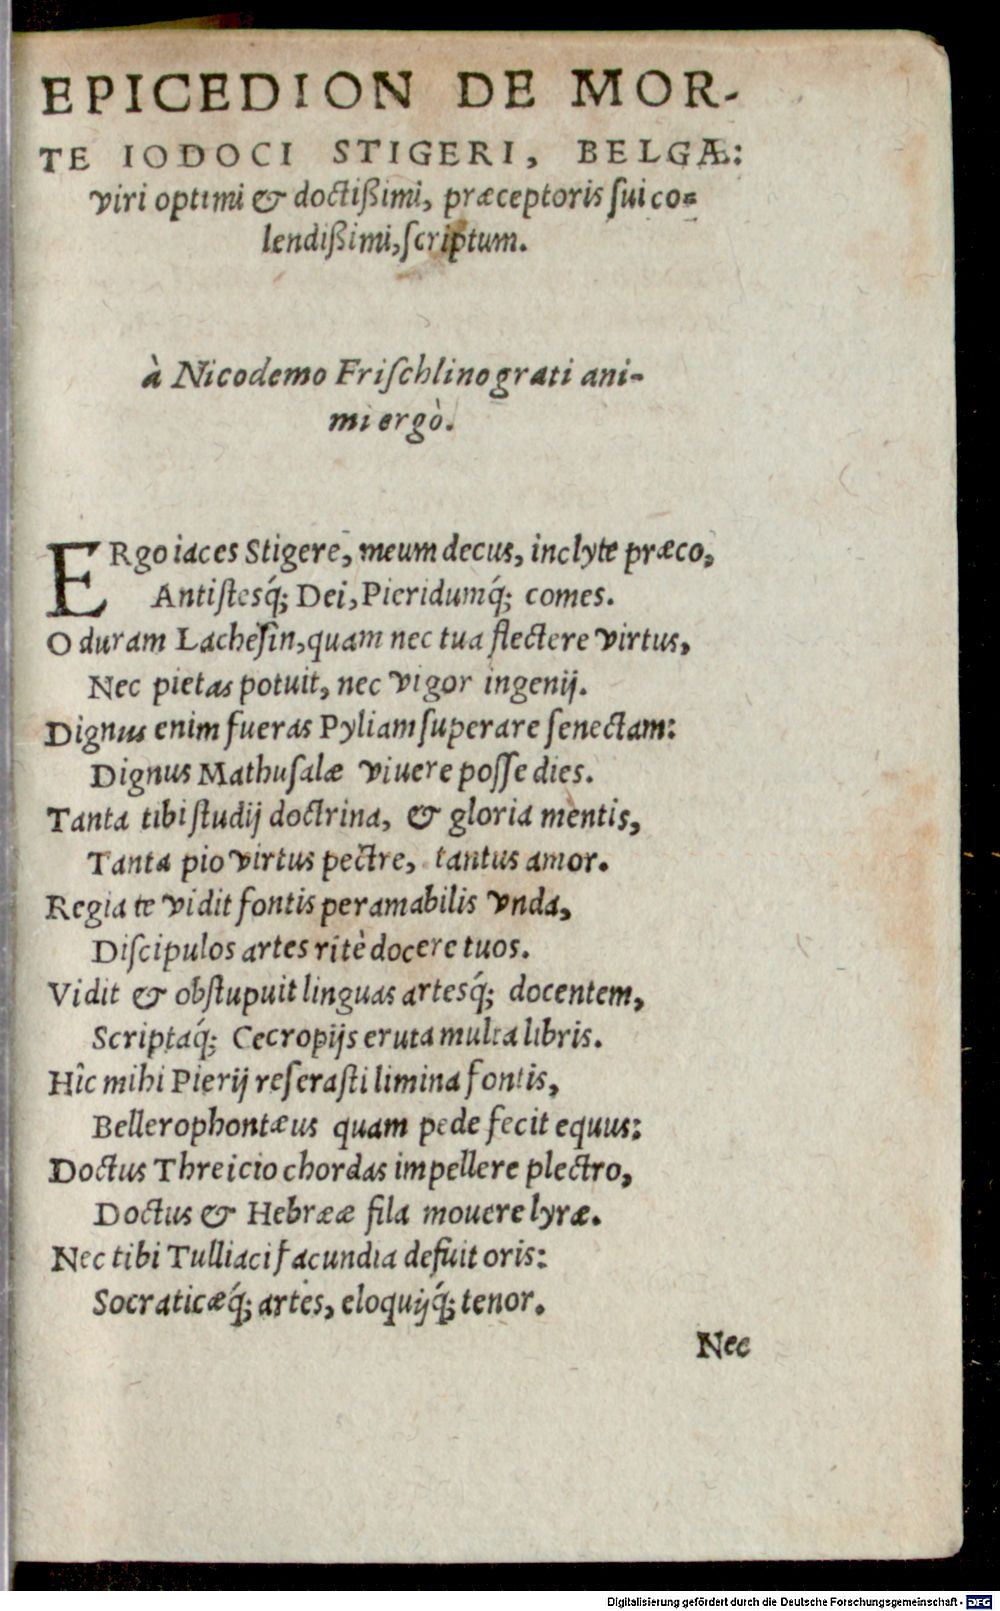 EPICEDION DE MOR-
TE IODOCI STIGERI, BELGÆ:
viri optimi & doctißimi, præceptoris ſui co-
lendißimi, ſcriptum.
à Nicodemo Friſchlino grati ani-
mi ergò.
ERgo iaces Stigere, meum decus, inclyte præco,
Antiſtesq́; Dei, Pieridumq́; comes.
O duram Lacheſin, quam nec tua flectere virtus,
Nec pietas potuit, nec vigor ingenij.
Dignus enim fueras Pyliam ſuperare ſenectam:
Dignus Mathuſalæ viuere poſſe dies.
Tanta tibi ſtudij doctrina, & gloria mentis,
Tanta pio virtus pectre, tantus amor.
Regia te vidit fontis peramabilis vnda,
Diſcipulos artes ritè docere tuos.
Vidit & obſtupuit linguas artesq́; docentem,
Scriptaq́; Cecropijs eruta multa libris.
Hîc mihi Pierij reſeraſti limina fontis,
Bellerophontæus quam pede fecit equus:
Doctus Threicio chordas impellere plectro,
Doctus & Hebrææ fila mouere lyræ.
Nec tibi Tulliaci facundia defuit oris:
Socraticæq́; artes, eloquijq́; tenor.
Nec
Digitalisierung gefördert durch die Deutsche Forschungsgemeinschaft - DFG